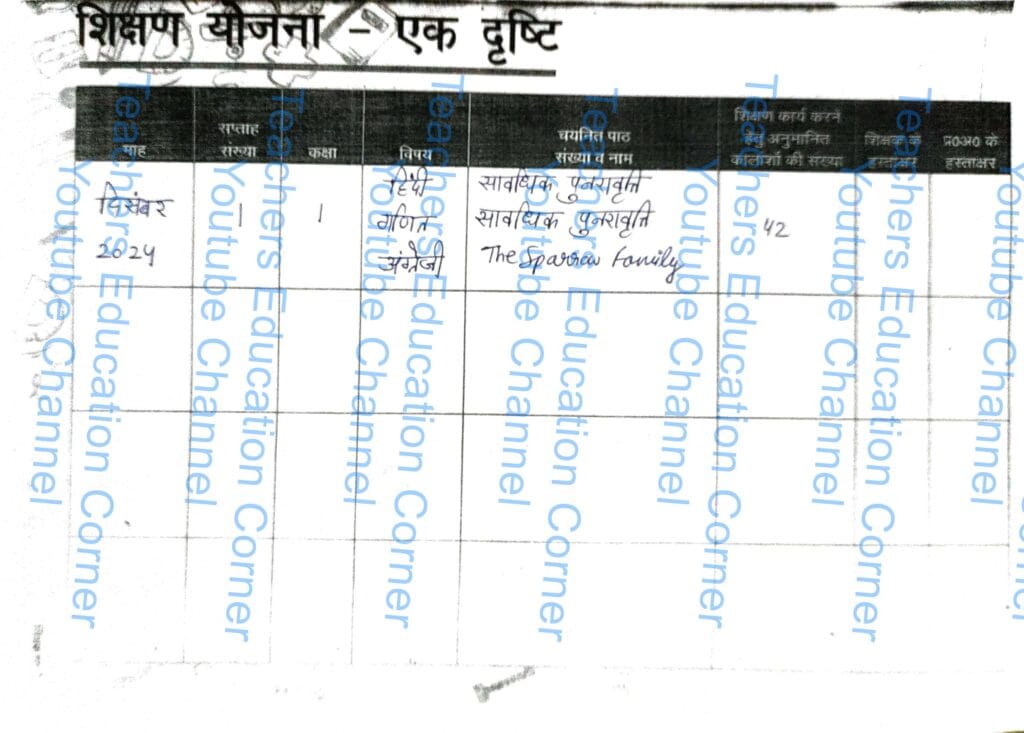 शिक्षण योजना - एक दृष्टि
माह
सप्ताह
संख्या
कक्षा
विषय
चयनित पाठ
संख्या व नाम
शिक्षण कार्य करने
हेतु अनुमानित
कालांशों की संख्या
शिक्षक के
हस्ताक्षर
प्र०अ० के
हस्ताक्षर
दिसंबर
2024
1
1
हिंदी
गणित
अंग्रेजी
सावधिक पुनरावृत्ति
सावधिक पुनरावृत्ति
The Sparrow Family
42
Teachers Education Corner
Youtube Channel
Teachers Education Corner
Youtube Channel
Teachers Education Corner
Youtube Channel
Teachers Education Corner
Youtube Channel
Teachers Education Corner
Youtube Channel
Teachers Education Corner
Youtube Channel
Teachers Education Corner
Youtube Channel